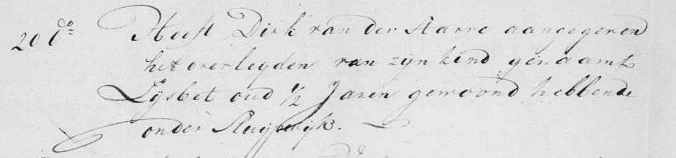 20 do Heeft Dirk van der Starre aangegeven
het overleyden van zyn kind genaamt
Lysbet oud ½ Jaren gewoond hebbende
onder Sluipwyk.